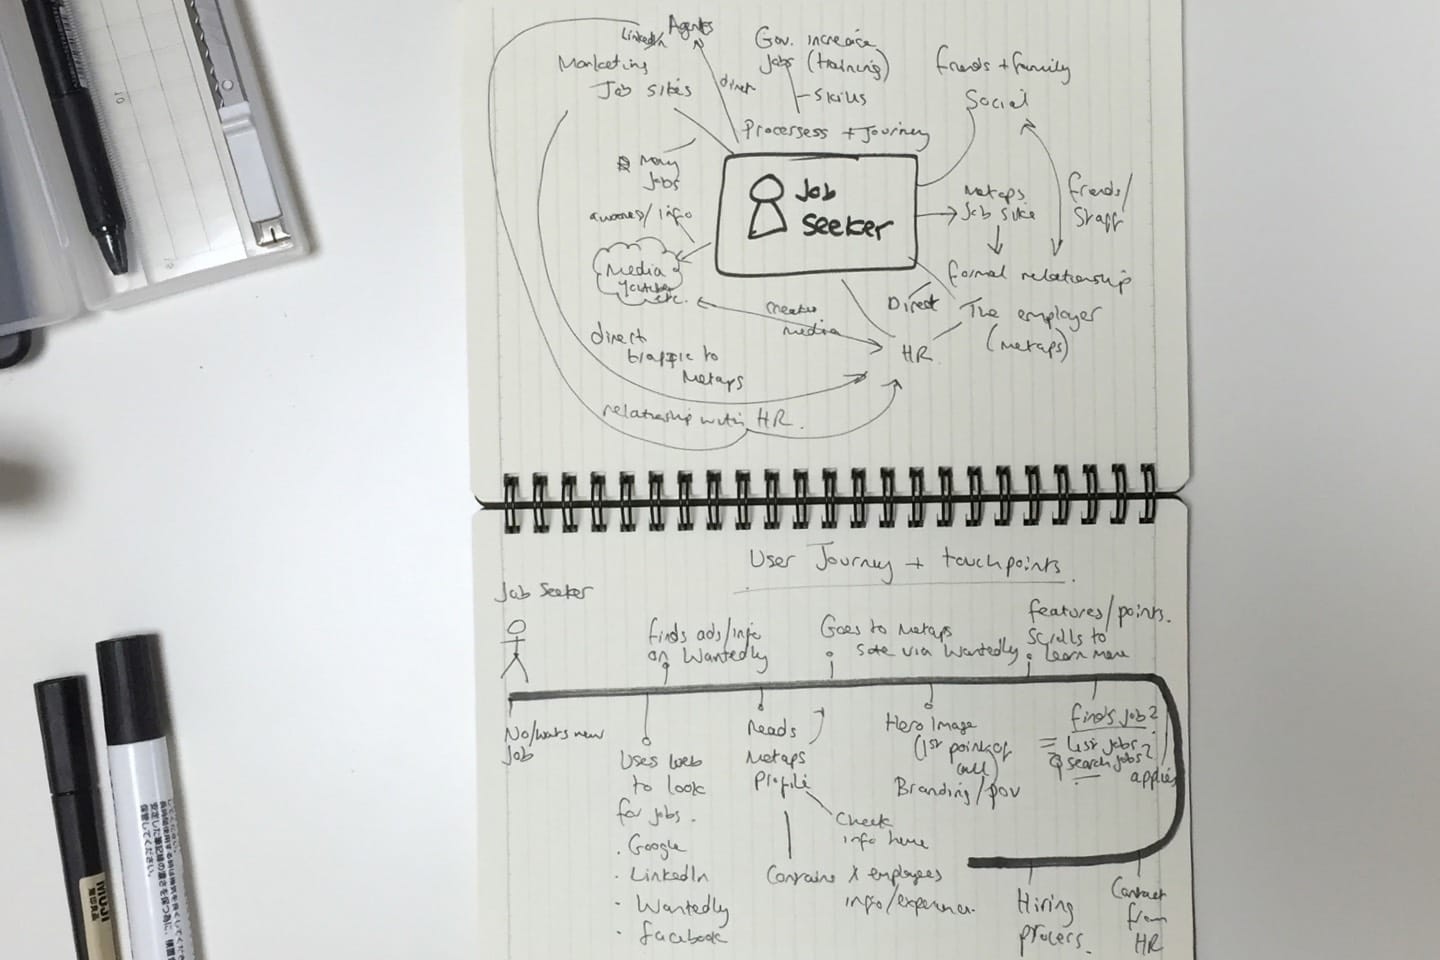 LinkedIn
Agents
Gov. increase
Jobs (training)
- Skills
Marketing
Job sites
direct
Friends + family
Social
Processess + Journey
Many
Jobs
/ info
Job
Seeker
Metaps
Job site
friends/
Staff
Media
Youtuber
etc.
formal relationship
Direct
The employer
(Metaps)
creates
media
HR
direct
traffic to
Metaps
relationship with HR.
User Journey + touchpoints
Job Seeker
finds ads/info
on Wantedly
Goes to Metaps
site via Wantedly
features/points.
Scrolls to
learn more
No/wants new
Job
Uses web
to look
for jobs.
. Google
. LinkedIn
. Wantedly
. facebook
Reads
Metaps
Profile
Check
info here
Contains X employees
info/experience.
Hero Image
(1st point of
call)
Branding/pov
finds job?
= List jobs?
search jobs?
applies
Contact
from
HR
Hiring
process.
MUJI
無印良品